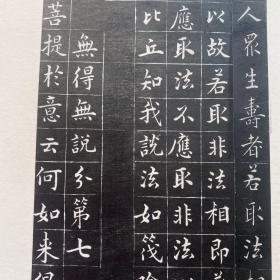 人眾生壽者若取法
以故若取非法相即
應取法不應取非法
比丘知我說法如筏
無得無說分第七
菩提於意云何如来得